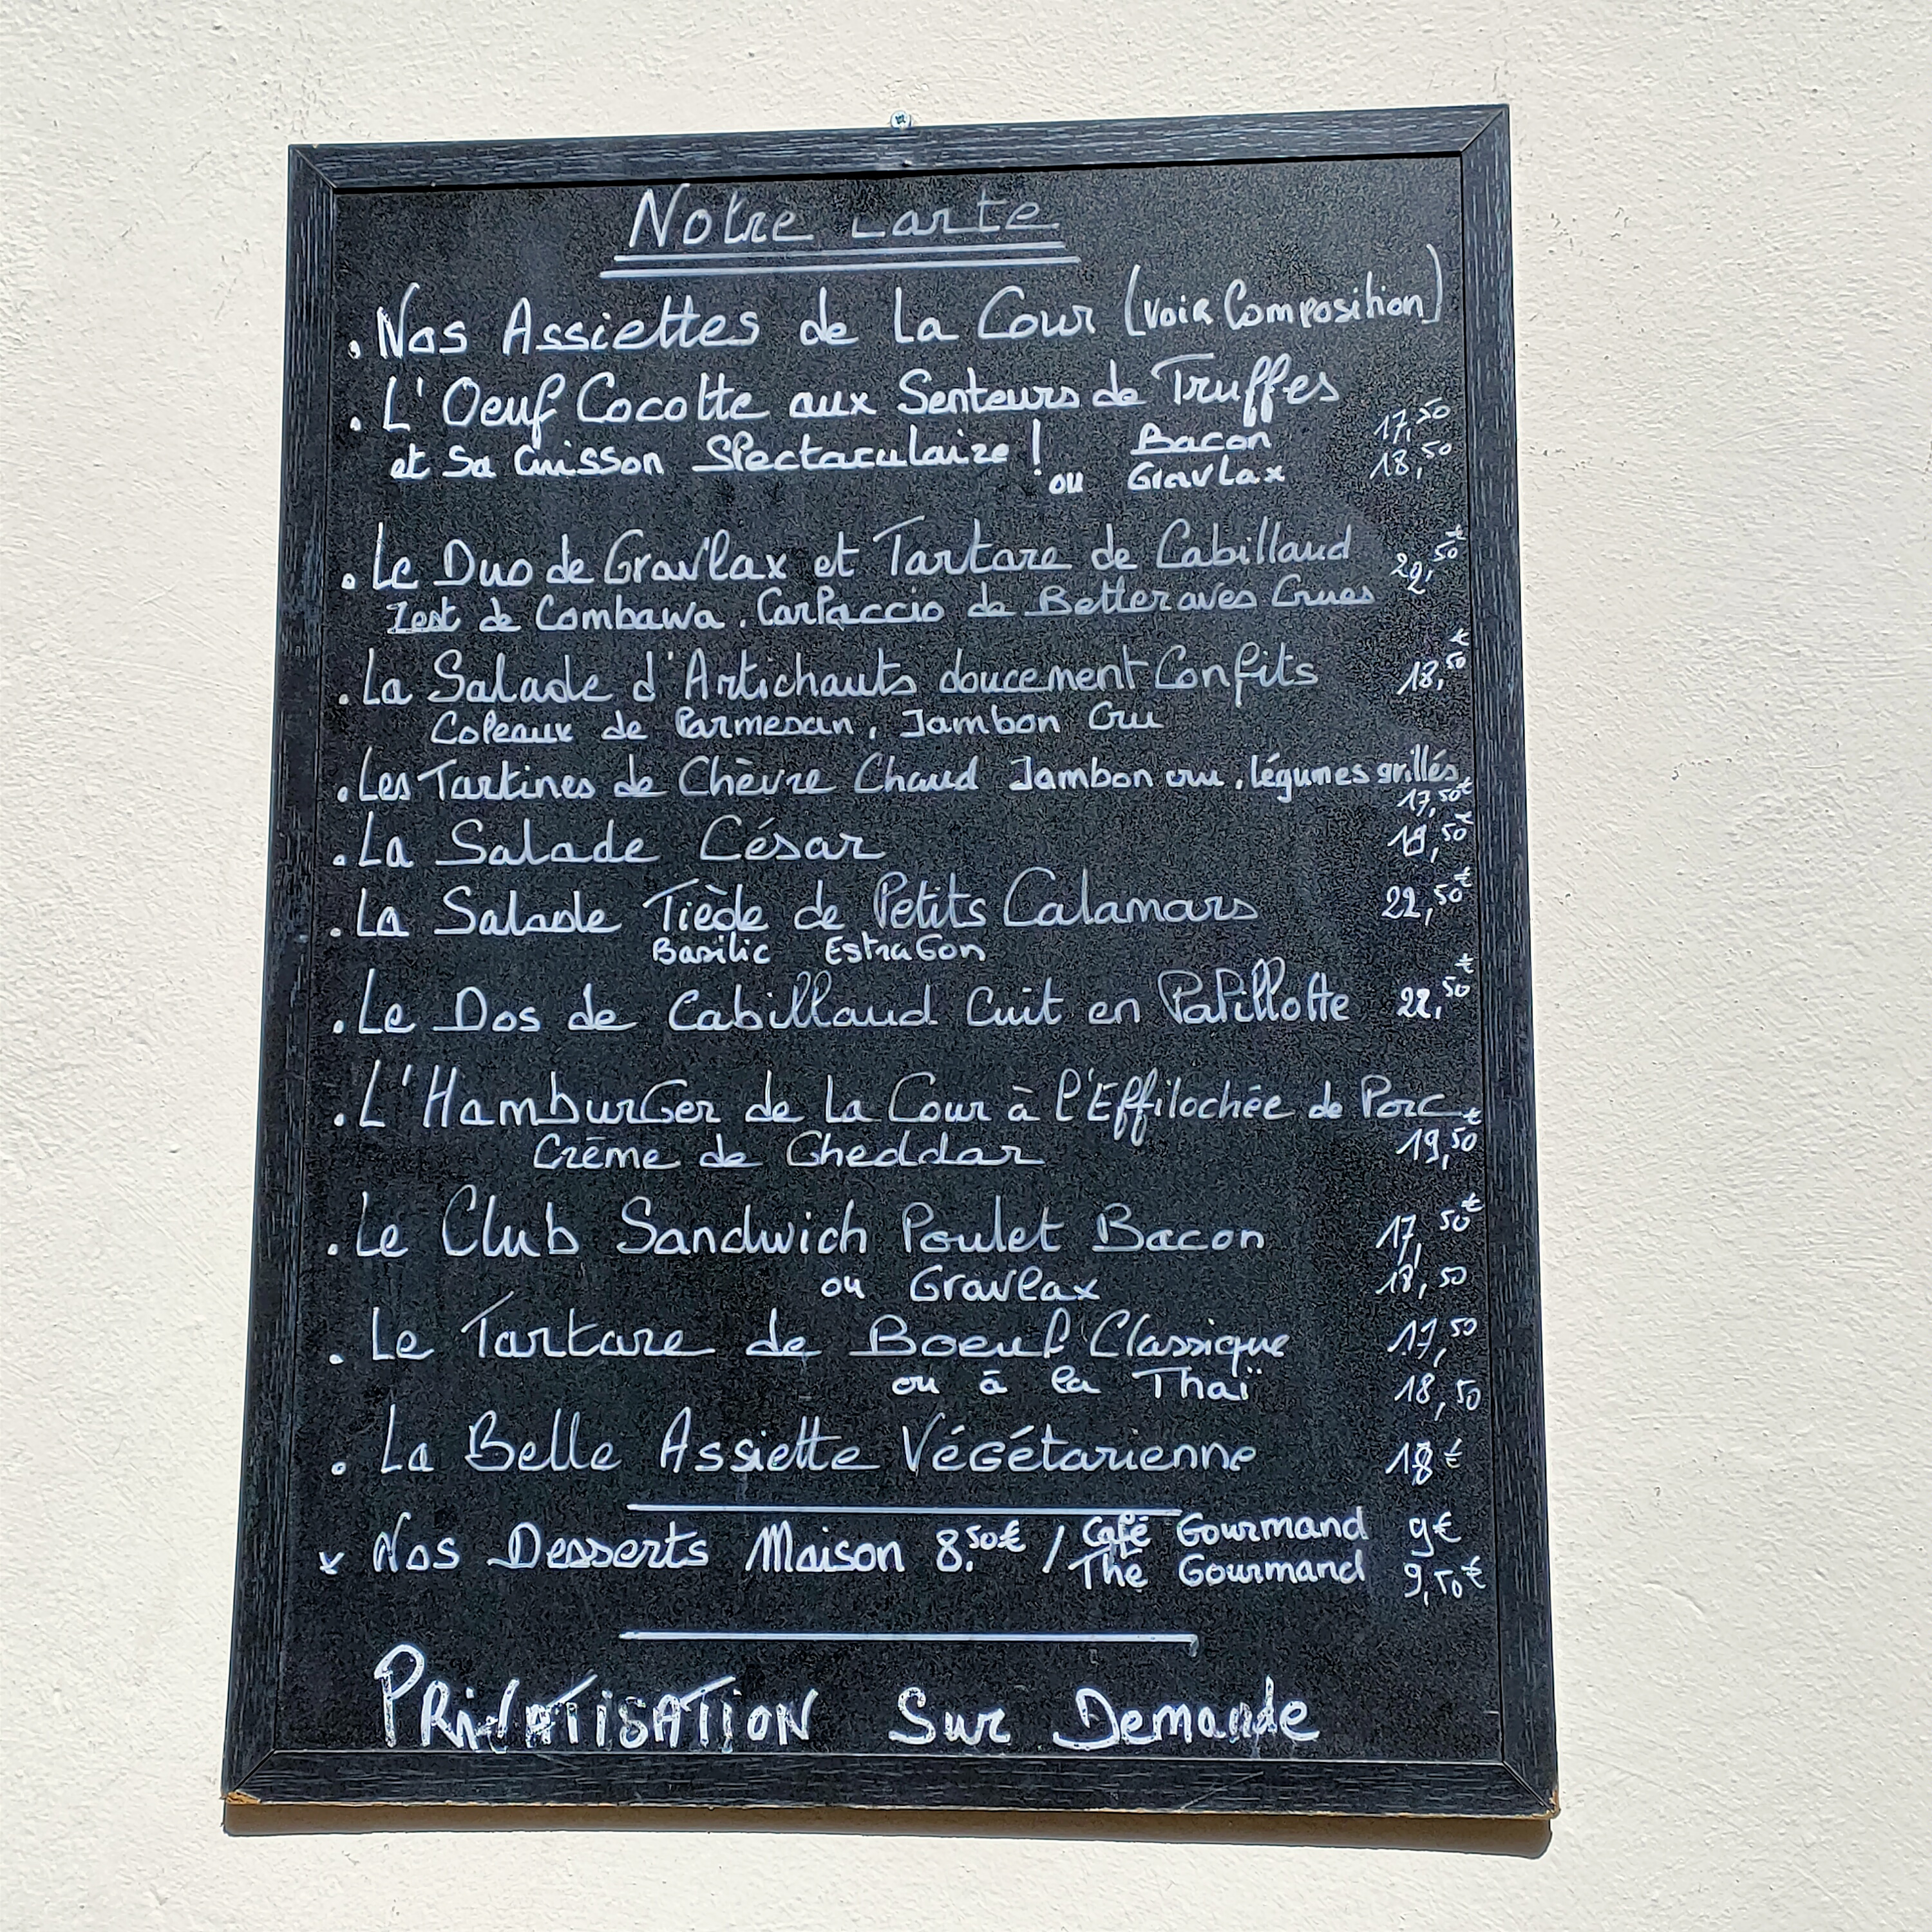 Notre carte
. Nos Assiettes de la Cour (voir Composition)
. L'Oeuf Cocotte aux Senteurs de Truffes
et Sa Cuisson Spectaculaire ! Bacon 17,50
ou Gravlax 18,50
. Le Duo de Gravlax et Tartare de Cabillaud ,50€
Zest de Combawa, Carpaccio de Betteraves Crues
. La Salade d'Artichauts doucement Confits 18,50€
Copeaux de Parmesan, Jambon Cru
. Les Tartines de Chèvre Chaud Jambon cru, légumes grillés
17,50€
. La Salade César ,50€
. La Salade Tiède de Petits Calamars 22,50€
Basilic Estragon
. Le Dos de Cabillaud Cuit en Papillotte 22,50€
. L'Hamburger de la Cour à l'Effilochée de Porc
Crème de Cheddar 19,50€
. Le Club Sandwich Poulet Bacon 17,50€
ou Gravlax 18,50
. Le Tartare de Boeuf Classique 17,50
ou à la Thaï 18,50
. La Belle Assiette Végétarienne 18€
x Nos Desserts Maison 8.50€ / Café Gourmand 9€
Thé Gourmand 9,50€
PRIVATISATION Sur Demande